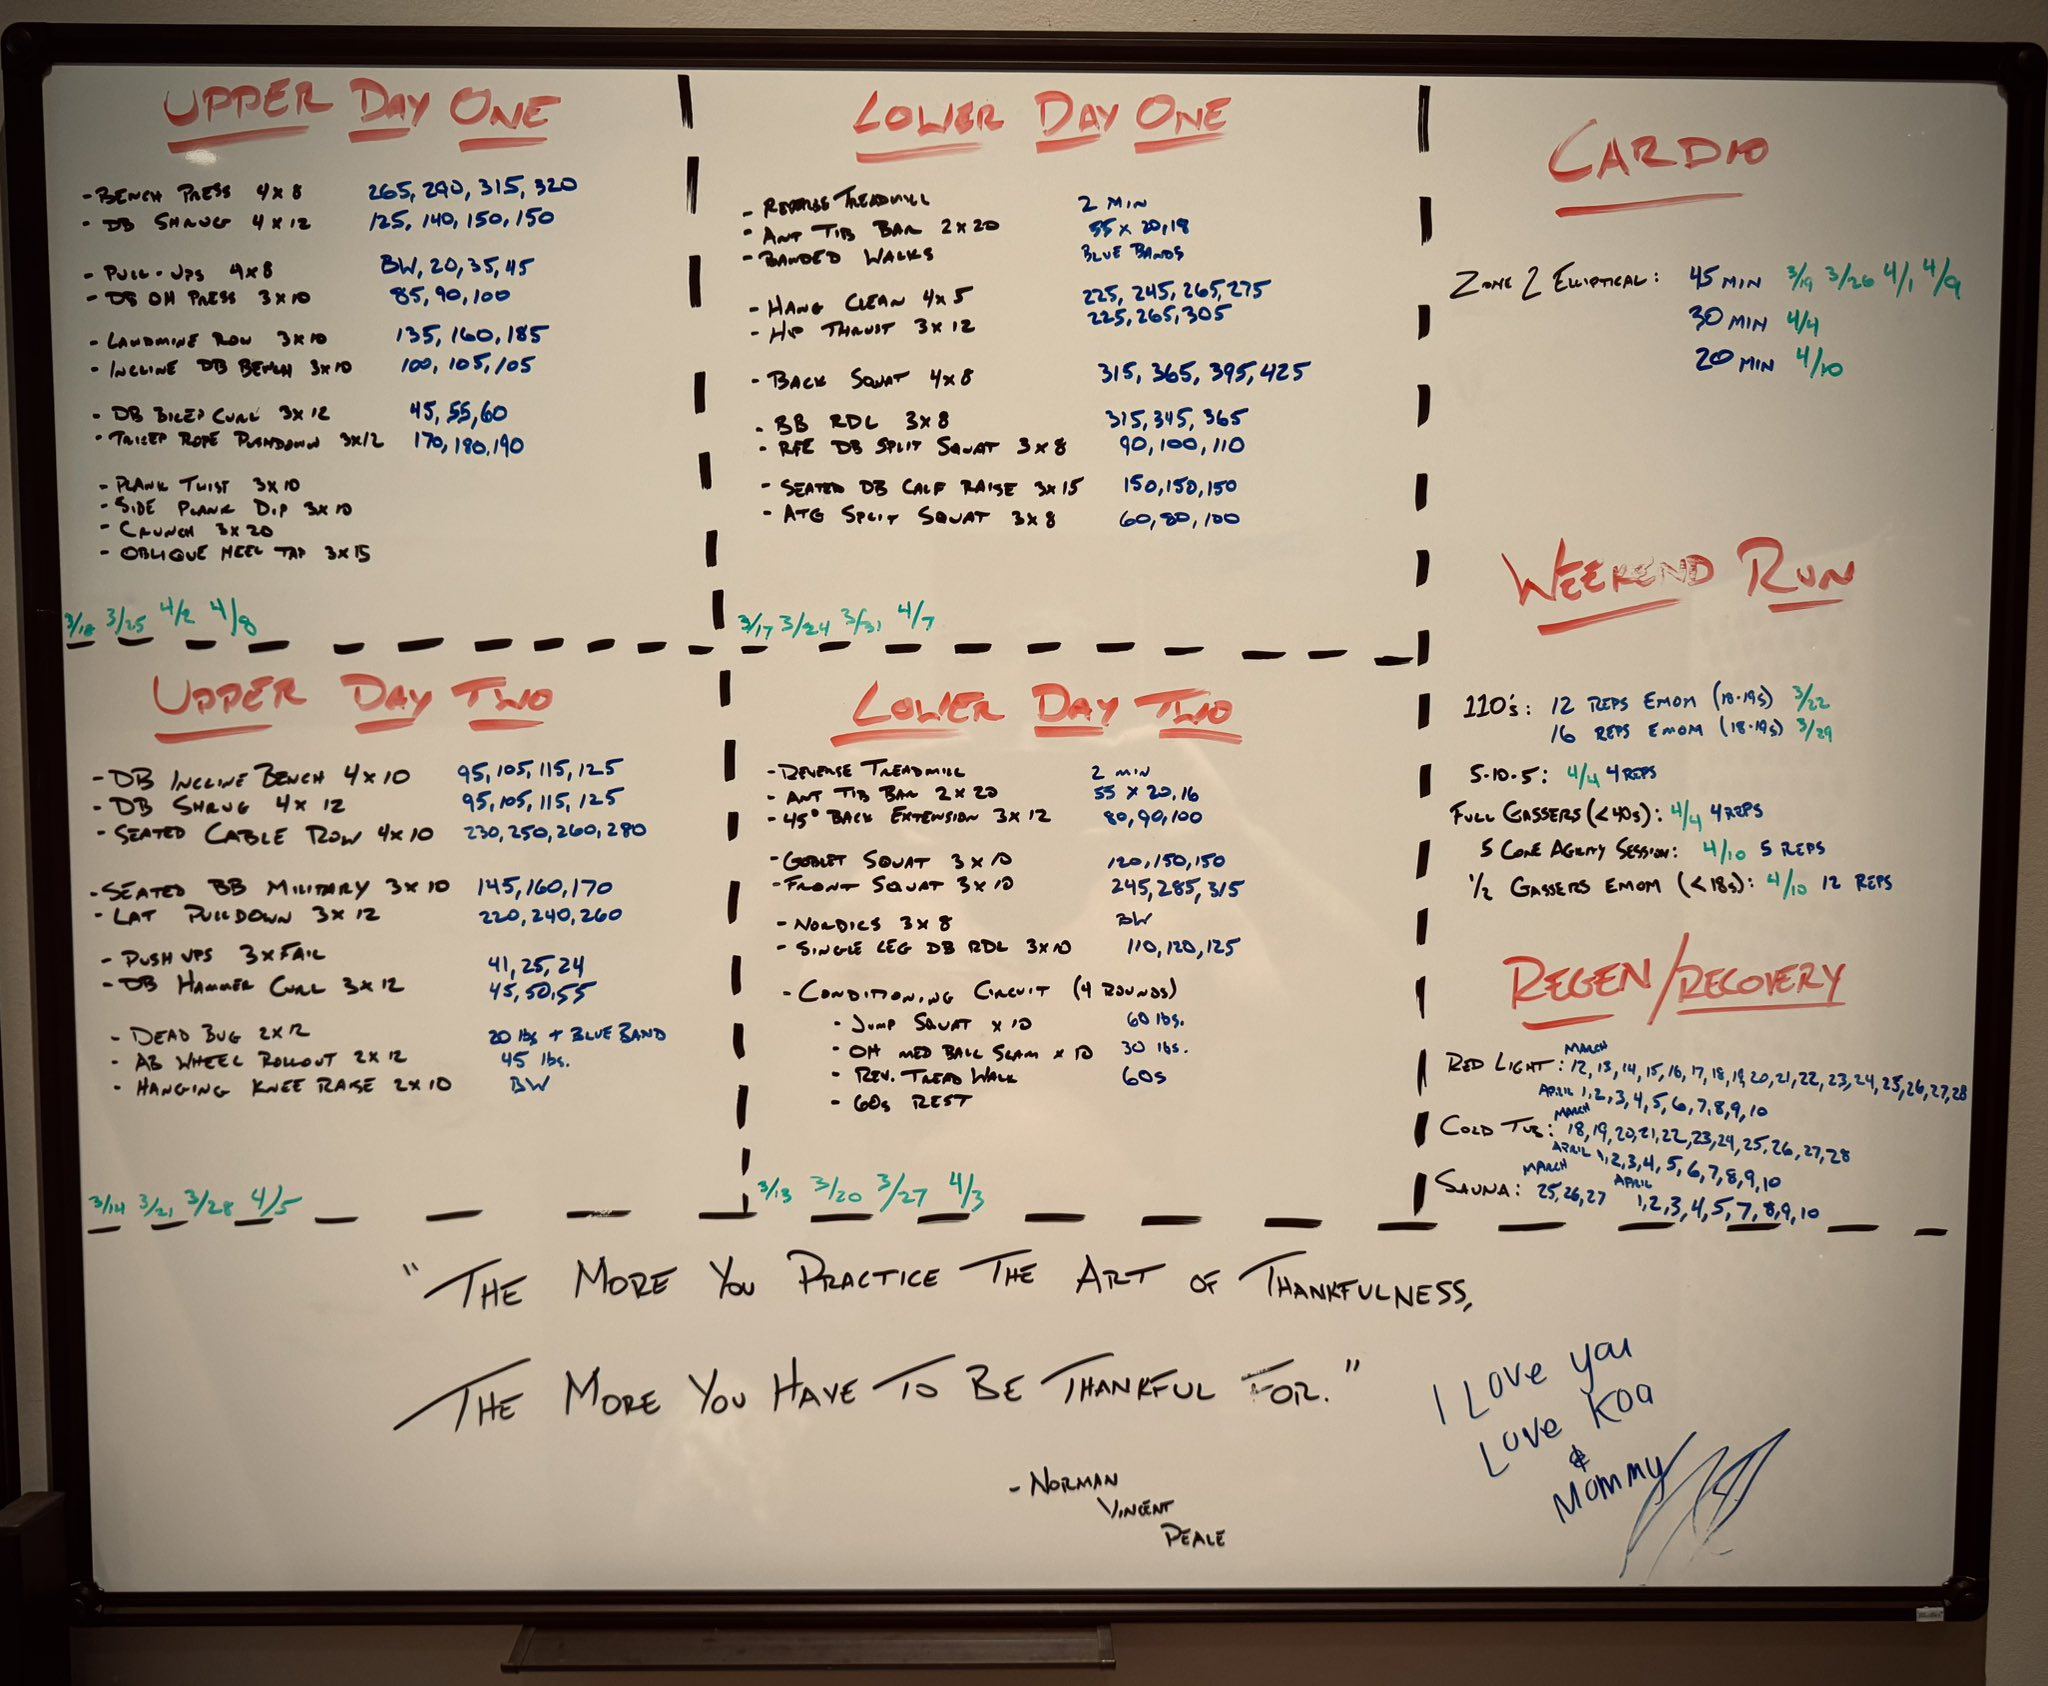 UPPER DAY ONE
- BENCH PRESS 4x8 265, 290, 315, 320
- DB SHRUG 4x12 125, 140, 150, 150
- PULL-UPS 4x8 BW, 20, 35, 45
- DB OH PRESS 3x10 85, 90, 100
- LANDMINE ROW 3x10 135, 160, 185
- INCLINE DB BENCH 3x10 100, 105, 105
- DB BICEP CURL 3x12 45, 55, 60
- TRICEP ROPE PUSHDOWN 3x12 170, 180, 190
- PLANK TWIST 3x10
- SIDE PLANK DIP 3x10
- CRUNCH 3x20
- OBLIQUE HEEL TAP 3x15
3/18 3/25 4/2 4/8
LOWER DAY ONE
- REVERSE TREADMILL 2 MIN
- ANT TIB BAR 2x20 55 x 20, 18
- BANDED WALKS BLUE BANDS
- HANG CLEAN 4x5 225, 245, 265, 275
- HIP THRUST 3x12 225, 265, 305
- BACK SQUAT 4x8 315, 365, 395, 425
- BB RDL 3x8 315, 345, 365
- RFE DB SPLIT SQUAT 3x8 90, 100, 110
- SEATED DB CALF RAISE 3x15 150, 150, 150
- ATG SPLIT SQUAT 3x8 60, 80, 100
3/17 3/24 3/31 4/7
CARDIO
ZONE 2 ELLIPTICAL: 45 MIN 3/19 3/26 4/1 4/9
30 MIN 4/4
20 MIN 4/10
WEEKEND RUN
110's: 12 REPS EMOM (18-19s) 3/22
16 REPS EMOM (18-19s) 3/29
5-10-5: 4/4 4 REPS
FULL GASSERS (<40s): 4/4 4 REPS
5 CONE AGILITY SESSION: 4/10 5 REPS
1/2 GASSERS EMOM (<18s): 4/10 12 REPS
UPPER DAY TWO
- DB INCLINE BENCH 4x10 95, 105, 115, 125
- DB SHRUG 4x12 95, 105, 115, 125
- SEATED CABLE ROW 4x10 230, 250, 260, 280
- SEATED BB MILITARY 3x10 145, 160, 170
- LAT PULLDOWN 3x12 220, 240, 260
- PUSH UPS 3xFAIL 41, 25, 24
- DB HAMMER CURL 3x12 45, 50, 55
- DEAD BUG 2x12 20 lbs + BLUE BAND
- AB WHEEL ROLLOUT 2x12 45 lbs.
- HANGING KNEE RAISE 2x10 BW
3/14 3/21 3/28 4/5
LOWER DAY TWO
- REVERSE TREADMILL 2 MIN
- ANT TIB BAR 2x20 55 x 20, 16
- 45° BACK EXTENSION 3x12 80, 90, 100
- GOBLET SQUAT 3x10 120, 150, 150
- FRONT SQUAT 3x10 245, 285, 315
- NORDICS 3x8 BW
- SINGLE LEG DB RDL 3x10 110, 120, 125
- CONDITIONING CIRCUIT (4 ROUNDS)
- JUMP SQUAT x10 60 lbs.
- OH MED BALL SLAM x10 30 lbs.
- REV. TREAD WALK 60s
- 60s REST
3/13 3/20 3/27 4/3
REGEN/RECOVERY
MARCH
RED LIGHT: 12, 13, 14, 15, 16, 17, 18, 19, 20, 21, 22, 23, 24, 25, 26, 27, 28
APRIL 1, 2, 3, 4, 5, 6, 7, 8, 9, 10
MARCH
COLD TUB: 18, 19, 20, 21, 22, 23, 24, 25, 26, 27, 28
APRIL 1, 2, 3, 4, 5, 6, 7, 8, 9, 10
MARCH APRIL
SAUNA: 25, 26, 27 1, 2, 3, 4, 5, 7, 8, 9, 10
"THE MORE YOU PRACTICE THE ART OF THANKFULNESS,
THE MORE YOU HAVE TO BE THANKFUL FOR."
- NORMAN
VINCENT
PEALE
I Love you
Love Koa
&
Mommy